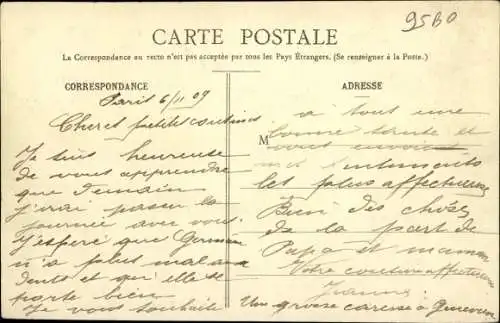 95B0
CARTE POSTALE
La Correspondance au recto n'est pas acceptée par tous les Pays Étrangers. (Se renseigner à la Poste.)
CORRESPONDANCE
Paris 6/11 09
Cher et petits cousines
Je suis heureuse
de vous apprendre
que demain
j'irai passer la
journée avec vous.
J'espère que Germaine
n'a plus mal aux
dents et qu'elle se
porte bien
Je vous souhaite
ADRESSE
M
à tout une
bonne santé et
vous envoie
mes sentiments
les plus affectueux
Bien des choses
de la part de
Papa et maman
Votre cousine affectueuse
Jeanne
Une grosse caresse à